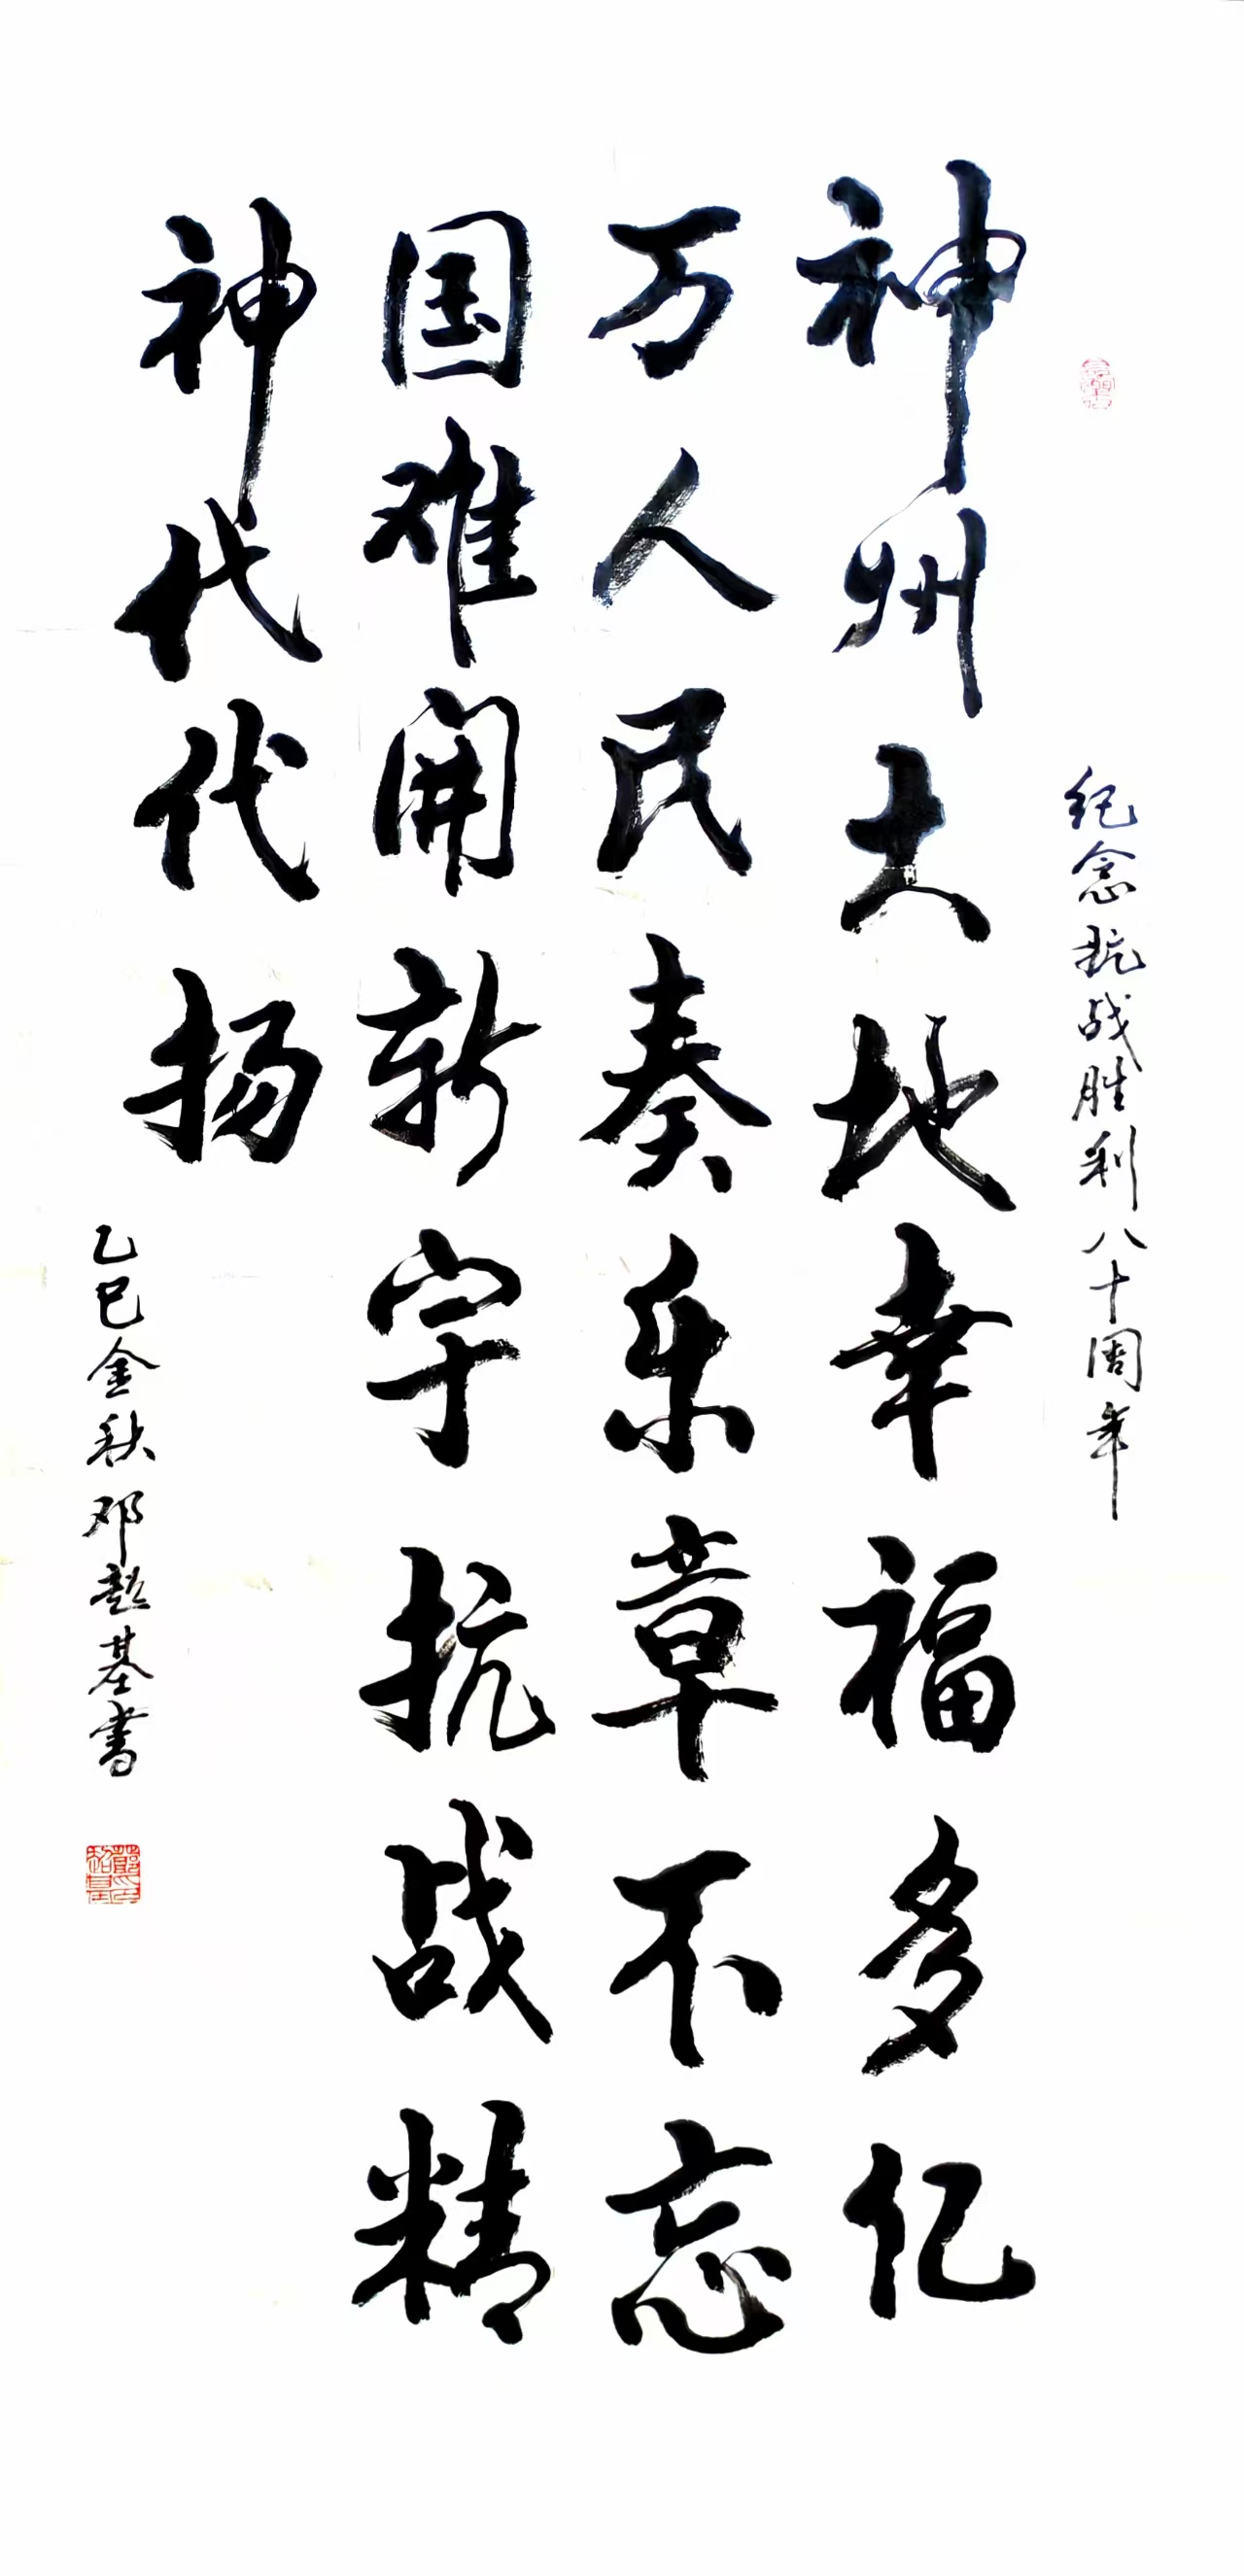 纪念抗战胜利八十周年
神州大地幸福多亿
万人民奏乐章不忘
国难开新宇抗战精
神代代扬
乙巳金秋邓超基书